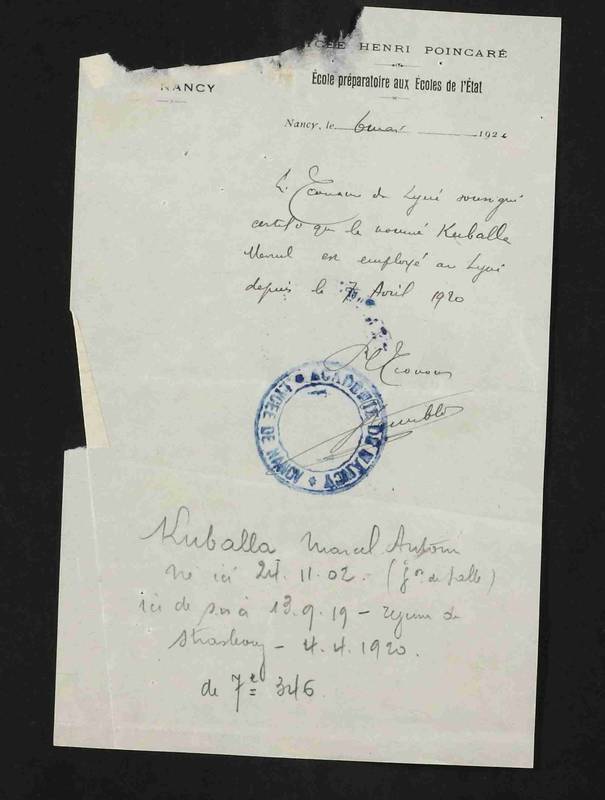 LYCÉE HENRI POINCARÉ
NANCY
École préparatoire aux Écoles de l'État
Nancy, le 6 mai 192
L'Econome du Lycée soussigné
certifie que le nommé Kuballa
Marcel est employé au Lycée
depuis le 7 Avril 1920
L'Econome
ACADÉMIE DE NANCY * LYCÉE DE NANCY *
Kuballa Marcel Antoine
né ici 24.11.02. (gon de salle)
ici de à 13.9.19 - de
Strasbourg - 4.4.1920.
de 7e 346